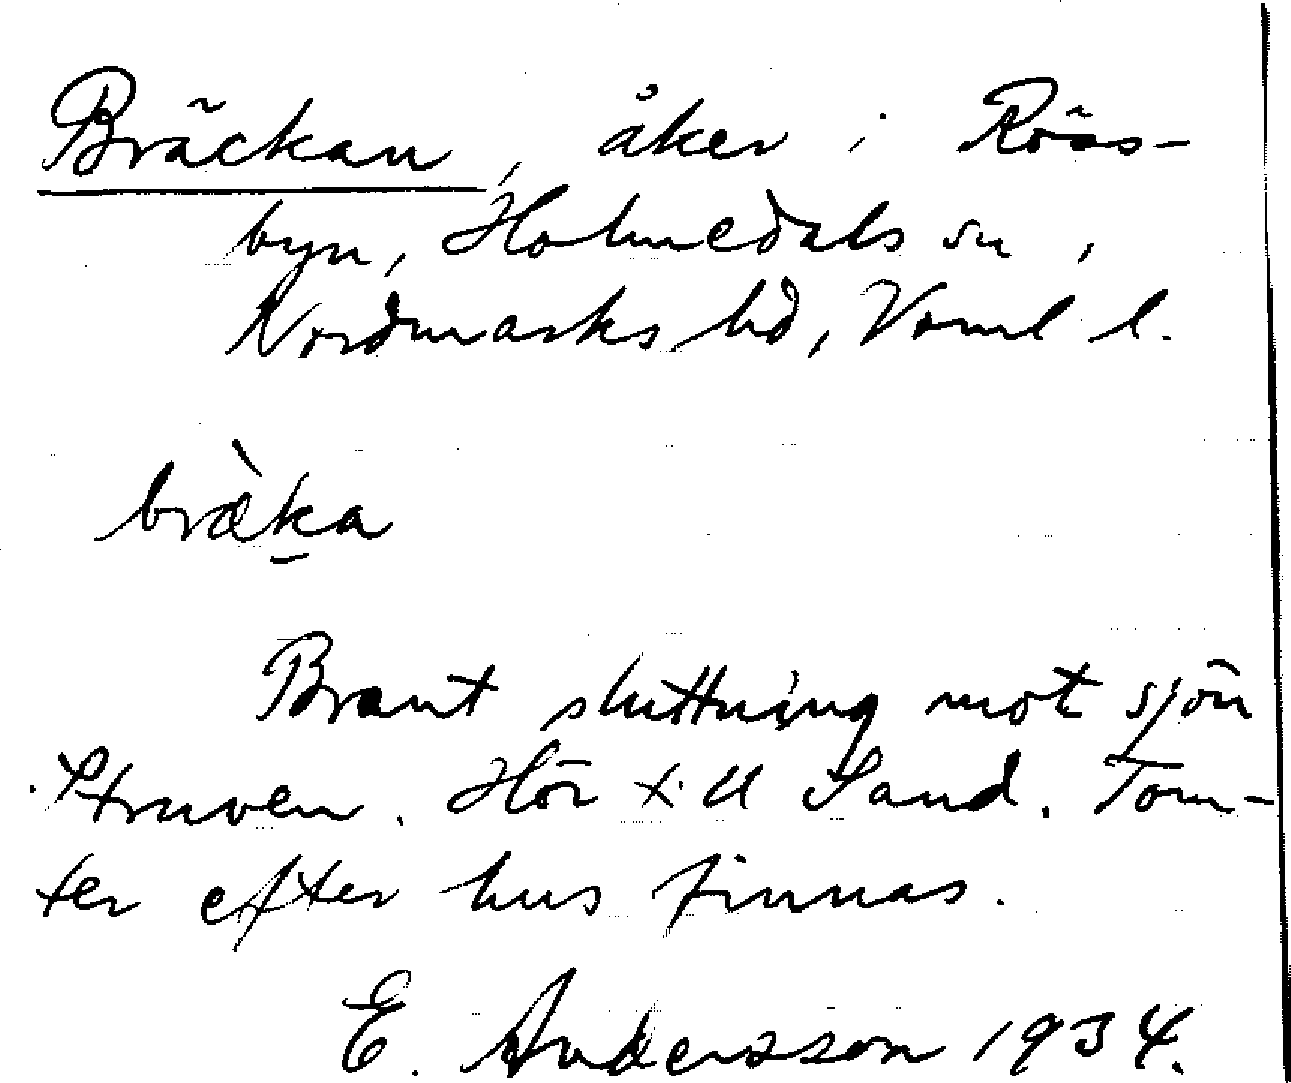 Bräckan, åker i Röäs-
byn, Holmedals sn,
Nordmarks hd, Värml l.
bræ̀ka
Brant sluttning mot sjön
Struven. Hör till Sand. Tom-
ter efter hus finnas.
E. Andersson 1934.